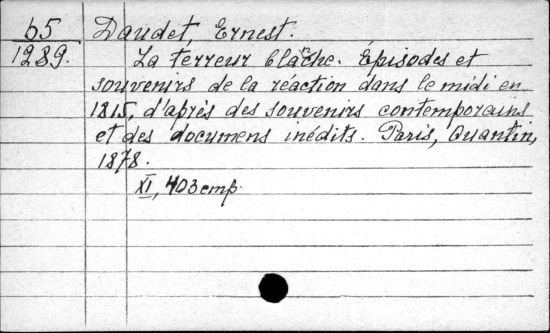 65
1289.
Daudet, Ernest.
La terreur blanche. Épisodes et
souvenirs de la réaction dans le midi en
1815, d'après des souvenirs contemporains
et des documens inédits. Paris, Quantin,
1878.
XI, 403 cmp.